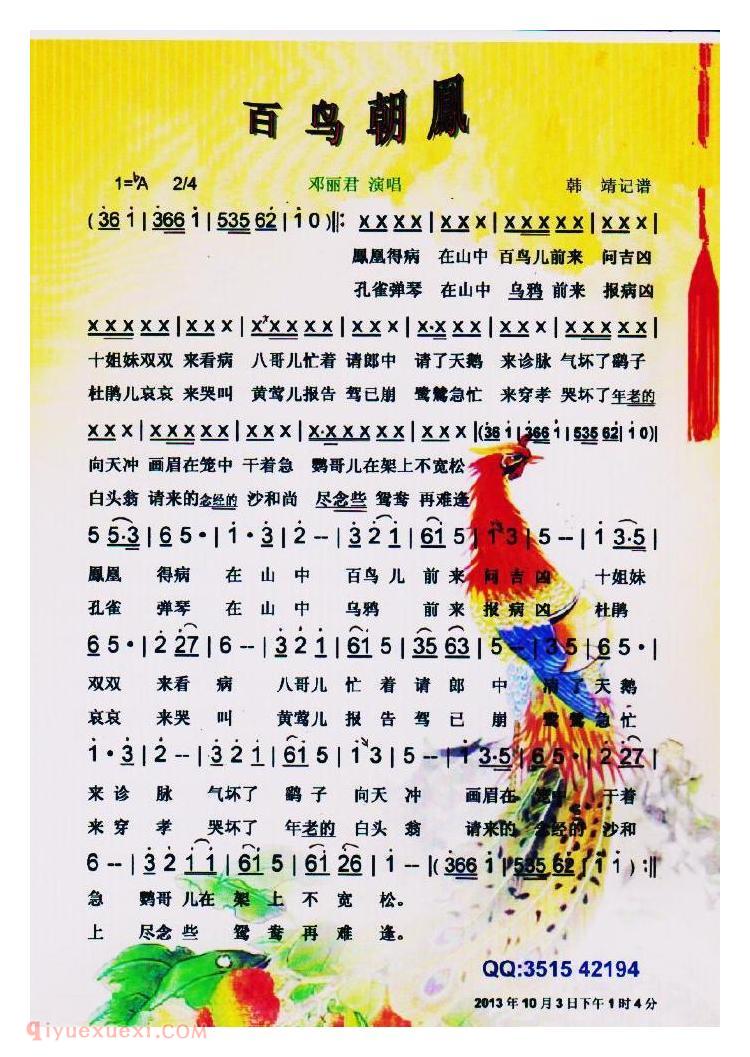 百鸟朝鳳
1=♭A 2/4 邓丽君 演唱 韩 靖记谱
(36 1|366 1|535 62|1 0)‖: x x x x|x x x|x x x x x|x x x|
鳳凰得病 在山中 百鸟儿前来 问吉凶
孔雀弹琴 在山中 乌鸦前来 报病凶
x x x x x|x x x|x x x x x|x x x|x·x x x|x x x|x x x x x|
十姐妹双双 来看病 八哥儿忙着 请郎中 请了天鹅 来诊脉 气坏了鹞子
杜鹃儿哀哀 来哭叫 黄莺儿报告 驾已崩 鹭鸶急忙 来穿孝 哭坏了年老的
x x x|x x x x x|x x x|x·x x x x|x x x|(36 1|366 1|535 62|1 0)|
向天冲 画眉在笼中 干着急 鹦哥儿在架上不宽松
白头翁 请来的念经的 沙和尚 尽念些 鸳鸯 再难逢
5 5·3|6 5·|1·3|2 --|3 2 1|61 5|1 3|5 --|1 3·5|
鳳凰 得病 在山中 百鸟儿 前来 问吉凶 十姐妹
孔雀 弹琴 在山中 乌鸦 前来 报病凶 杜鹃
6 5·|2 27|6 --|3 2 1|61 5|35 63|5 --|3·5|6 5·|
双双 来看 病 八哥儿 忙着请郎中 请了天鹅
哀哀 来哭 叫 黄莺儿 报告驾已崩 鹭鸶急忙
1·3|2 --|3 2 1|61 5|1 3|5 --|1 3·5|6 5·|2 27|
来诊脉 气坏了 鹞子 向天冲 画眉在 笼中 干着
来穿孝 哭坏了 年老的 白头翁 请来的 念经的 沙和
6 --|3 2 1 1|61 5|61 26|1 --|(366 1|535 62|1 1):‖
急 鹦哥儿在 架上不宽松。
上 尽念些 鸳鸯再难逢。
QQ:3515 42194
2013年10月3日下午1时4分
qiyuexuexi.COM